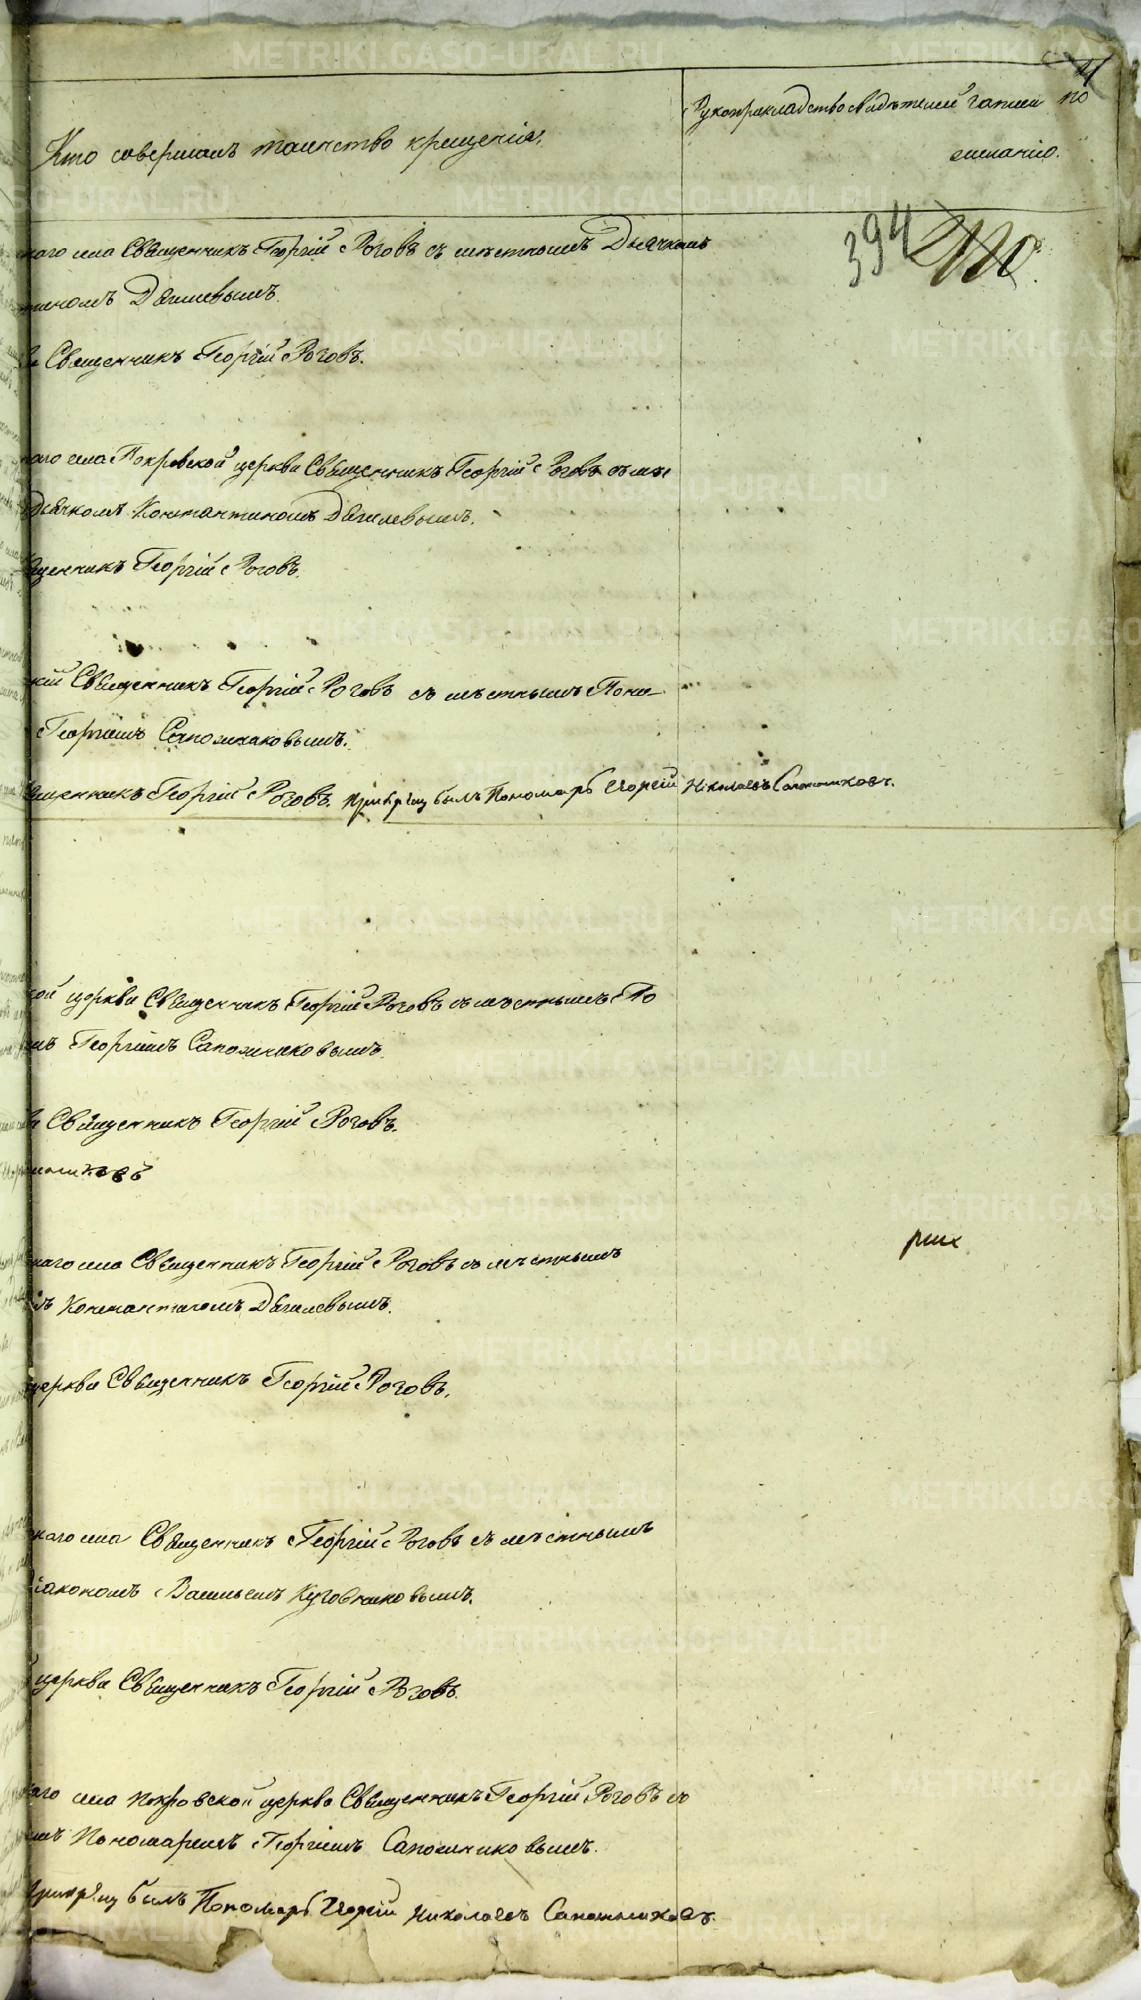 21
Кто совершалъ таинство крещенія,
Рукоприкладство свидѣтелей записи по
желанію.
394
каго села Священникъ Георгій Роговъ съ мѣстнымъ Дьячкомъ
Дягилевымъ.
Священникъ Георгій Роговъ.
каго села Покровской церкви Священникъ Георгій Роговъ съ мѣс
Дьячкомъ Константиномъ Дягилевымъ.
щенникъ Георгій Роговъ.
кій Священникъ Георгій Роговъ съ мѣстнымъ Поно
Георгіемъ Сапожниковымъ.
щенникъ Георгій Роговъ. При крещ былъ Пономарь Георгій Николаевъ Сапожниковъ.
кой церкви Священникъ Георгій Роговъ съ мѣстнымъ По
мъ Георгіемъ Сапожниковымъ.
Священникъ Георгій Роговъ.
каго села Священникъ Георгій Роговъ съ мѣстнымъ
рих
мъ Константиномъ Дягилевымъ.
церкви Священникъ Георгій Роговъ.
каго села Священникъ Георгій Роговъ съ мѣстнымъ
Діакономъ Васильемъ
церкви Священникъ Георгій Роговъ.
каго села Покровской церкви Священникъ Георгій Роговъ съ
мъ Пономаремъ Георгіемъ Сапожниковымъ.
При крещ былъ Пономарь Георгій Николаевъ Сапожниковъ.
METRIKI.GASO-URAL.RU